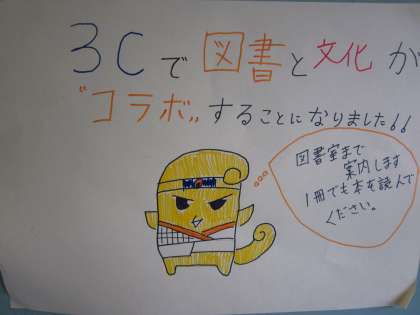 3Cで図書と文化が
"コラボ"することになりました!!
図書室まで
案内します
1冊でも本を読んで
ください。